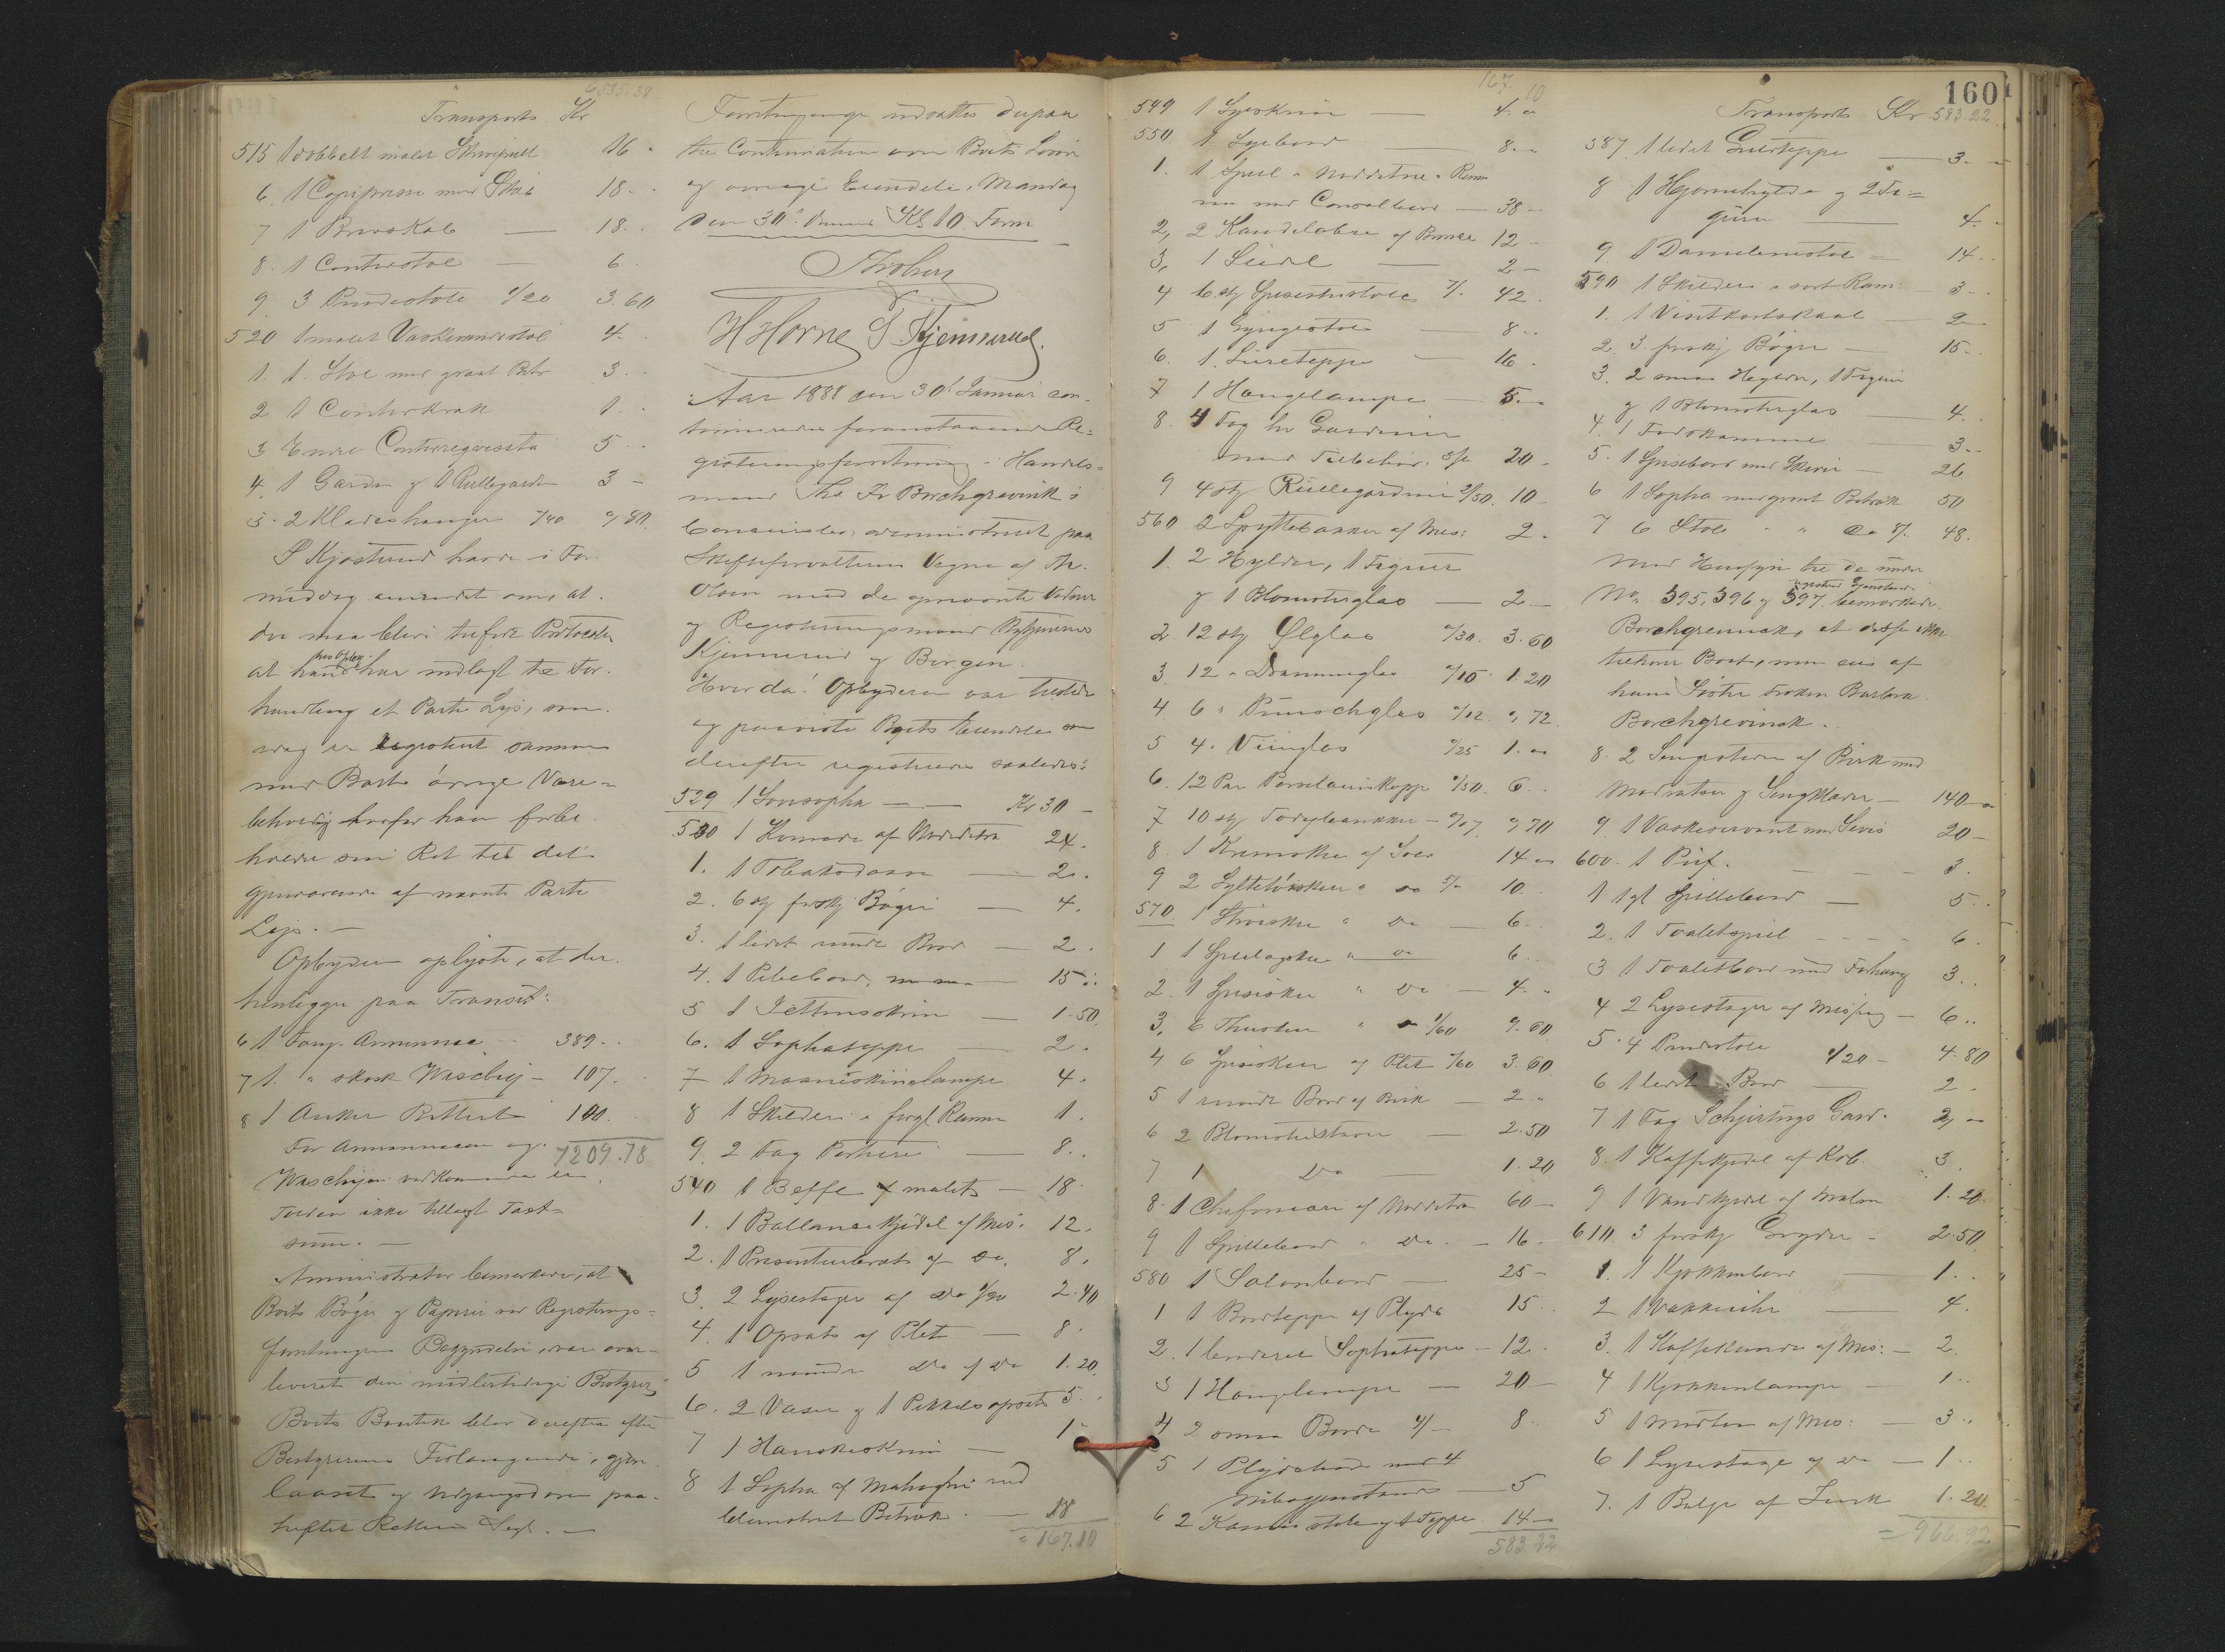 6535.38
Transport Kr
515 1 dobbelt malet Skrivepult 16 -
6. 1 Copipresse med Skab 18 -
7 1 Brevskab — 18 -
8. 1 Contorstol — 6
9 3 Pindestole 1/20 3.60
520 1 malet Vaskevandsstol 4 -
1. 1 Stol med graat Betr 3 -
2 1 Contorkrak 1 -
3 Endel Contorreqvisita 5 -
4. 1 Gardin og 1 Rullegardin 3 -
5. 2 Kladeshenger /40 " 80.
S Kjøstrud havde i For-
middag anmeldt om, at
der maa blive tilført Protocollen
at han har indlagt til For-
handling et Parti Lys, som
idag er registreret sammen
med Boets øvrige Vare-
beholdning hvorfor han forbe-
holdt sin Ret til det
gjenværende af nævnte Parti
Lys. —
Opbyderen oplyste, at der
henligger paa Transit:
6 1 Tang. Armenac 389 -
7 1 " skotsk Whiskey - 107.
8 1 Anker 100.
For Armenacen og 7209.78
Whiskyen vedkommende er
Tolden ikke tillagt Taxt-
sum. —
Administrator bemærkede, at
Boets Bøger og Papirer ved Registrerings-
forretningens Begyndelse, var over-
leveret den midlertidige Bestyrer
Boets Boutik blev derefter efter
Bestyrerens Forlangende, gjen-
laaset og Udgangsdøren paa-
heftet Rettens Segl. —
Forretningen udsattes derpaa
til Continuation over Boets Løsøre
og øvrige Eiendele, Mandag
den 30te dennes Kl 10 Form
HHorne P. Kjennerud.
Aar 1888 den 30te Januar con-
tinueredes foranstaaende Re-
gistreringsforretning i Handels-
mand Chr Fr Borchgrevink's
Concursbo, administreret paa
Skifteforvalterens Vegne af Th.
Olsen med de opnævnte Vidner
og Registreringsmænd
Kjennerud og Borgen.
Hvorda! Opbyderen var tilstede
og paaviste Boets Eiendele som
derefter registreredes saaledes:
529 1 Sovesopha — — Kr 30 -
530 1 Komode af Nøddetræ 24.
1. 1 Tobaksdaase — 2 -
2. 6 st forskj Bøger — 4.
3. 1 lidet rundt Bord — 2.
4. 1 Pibebord, m. m. — 15 -
5 1 skrin — 1.50.
6. 1 Sophateppe — 2.
7 1 Maaneskinslampe 4.
8 1 Skilderi i forgl. Ramme 1.
9. 2 Fag Portierer — 8 -
540 1 Boffe malet — 18
1. 1 Ballancekjedel af Mes. 12.
2. 1 Presenteerbret af Do. 8.
3. 2 Lysestager af do 1/20 2.40
4. 1 Opsats af Plet — 8.
5 1 mindre do af do 1.20.
6. 2 Vaser og 1 Pikkelsopsats 5.
7 1 Hanskeskrin — 1 -
8 1 Sopha af Mahogni med
blomstret Betræk. — 18
= 167.10
167.10
549 1 Syeskrin — 4. -
550 1 Syebord — 8 -
1. 1 Speil i Nøddetræ Ram
me med Consolbord — 38 -
2, 2 Kandelabre af Bronce 12 -
3, 1 — 2 -
4 6 st Spisestuestole 7/. 42.
5 1 Gyngestol — 8 -
6. 1. Stueteppe — 16 -
7 1 Hængelampe — 5 -
8. 4 Fag hv Gardiner
med Tilbehør. 5/- 20 -
9 4 st Rullegardiner 2/50. 10 -
560 2 Spyttebakker af Mes: 2 -
1. 2 Hylder, 1 Figur
og 1 Blomsterglas — 2 -
2. 12 st Ølglas "/30. 3.60
3. 12 " Dramneglas "/10. 1.20
4 6 " Punschglas "/12 ". 72.
5 4. Viinglas "/25 1. -
6. 12 Par Porcelainskopper "/50. 6 -
7 10 st Todybankker - "/07 ". 70
8. 1 Kremske af Sølv 14 -
9 2 Syltetøiskeer " do 5/- 10.
570. 1 Strøiske " do — 6 -
1 1 " do 6 -
2. 1 Spiseske " do — 4. -
3, 6 Theskeer " 1/60 9.60
4 6 Spiseskeer af Plet "/60 3.60
5 1 rundt Bord af Birk — 2 "
6 2 Blomsterstativ — 2.50
7 1 Do — 1.20
8. 1 Chifonniere af Nøddetræ 60 -
9 1 Spillebord " do — 16.
580 1 Salonbord — 25 -
1 1 Bordteppe af Plyds 15.
2. 1 Sophateppe - 12.
3 1 Hænglampe — 20 -
4 2 smaa Borde 4/- 8 -
5 1 Plydsstol med 4
— 5
6 2 Kurvestole og 1 Teppe 14 -
583.22
160
Transport Kr 583.22
587. 1 lidet Gulvteppe — 3 -
8 1 Hjørnehylde og 2 Fi-
gurer — 4 -
9. 1 Damelenestol - 14 -
590 1 Skilderi i sort Ram. - 3 -
1. 1 Visitkortskaal — 2 -
2. 3 forskj Bøger — 15 -
3. 2 smaa Hylder, 1 Figur
og 1 Blomsterglas — 4.
4. 1 Fodskammel — 3 -
5. 1 Spisebord med Skuer — 26
6 1 Sopha med grønt Betræk 50
7 6 Stole " " do 8/. 48.
Med Hensyn til de under
No. 395, 396 og 397 registrerede Gjenstande bemærkede
Borchgrevink, at disse ikke
tilhører Boet, men eies af
hans Søster Frøken Barbra
Borchgrevinck.
8. 2 Sengesteder af Birk med
Madratser og Sengklæder — 140 -
9. 1 Vaskeservant med Servis 20 -
600. 1 Puf. - - - 3.
1 1 gl Spillebord — 5 -
2. 1 Toiletspeil - - - - 6.
3 1 Toiletbord med Forhæng 3.
4 2 Lysestager af Messing — 6 -
5. 4 Pindestole 1/20 - 4.80
6 1 lidet Bord — 2.
7 1 Fag Schjirtings Gard. 2, -
8. 1 Kaffekjedel af Kob. 3.
9 1 Vandkjedel af Malm 1.20
610. 3 forskj Gryder - 2.50
1. 1 Kjøkkenbord — 1. -
2 1 Vækkeuhr — 4.
3. 1 Kaffekande af Mes: - 2.
4 1 Kjøkkenlampe — 1 -
5 1 Morter af Mes: — 3 -
6 1 Lysestage af do — 1 -
7. 1 Balje af Zink 1.20.
= 966.92